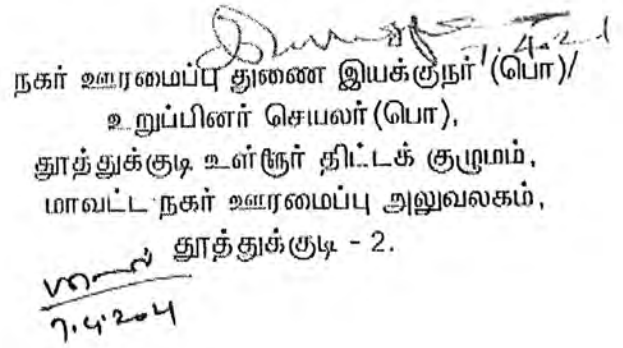 4.21
நகர் ஊரமைப்பு துணை இயக்குநர் (பொ)/
உறுப்பினர் செயலர் (பொ),
தூத்துக்குடி உள்ளூர் திட்டக் குழுமம்,
மாவட்ட நகர் ஊரமைப்பு அலுவலகம்,
தூத்துக்குடி - 2.
7.4.2021